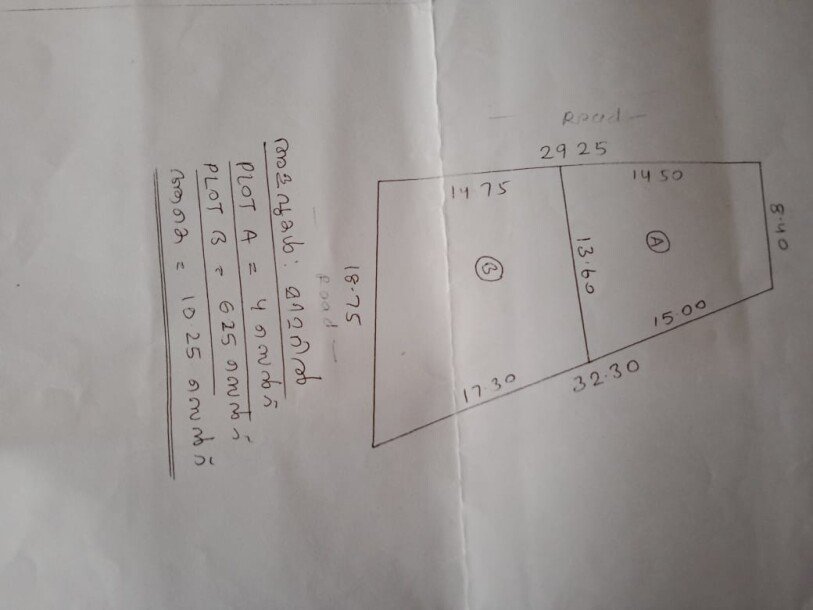 Road
29 25
14 75
14 50
8.40
B
13.60
A
18.75
Road
15.00
17.30
32.30
PLOT A = 4 സെന്റ്
PLOT B = 625 സെന്റ്
= 10.25 സെന്റ്